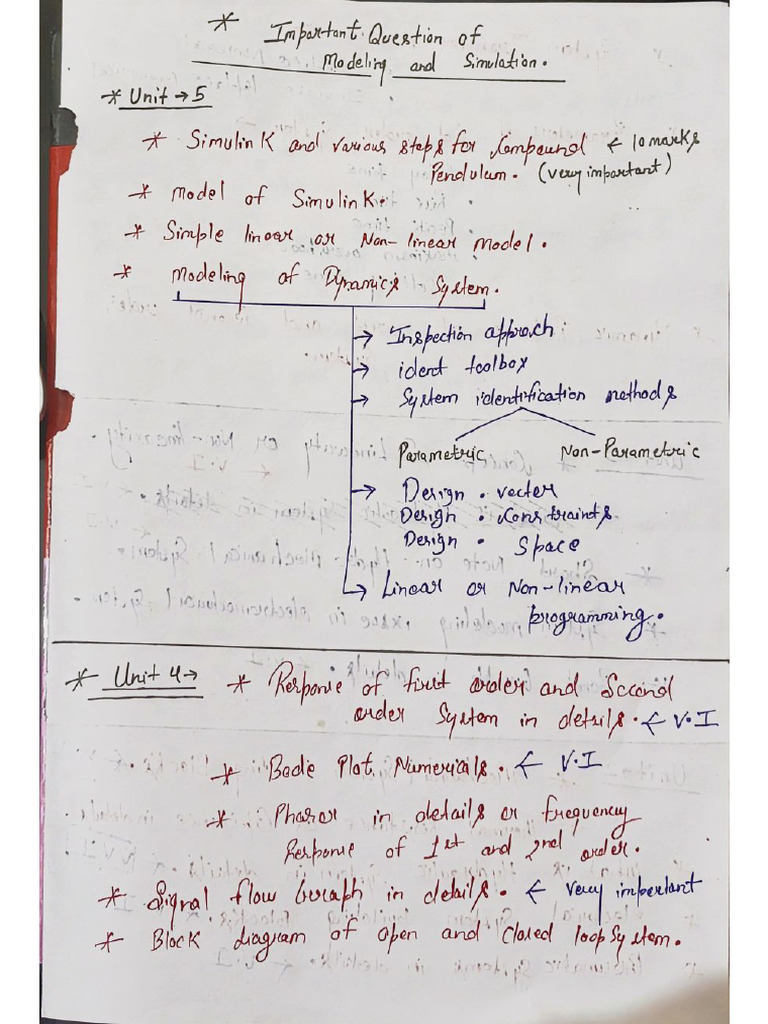 * Important Question of
Modeling and Simulation.
* Unit → 5
* Simulink and various steps for Compound ← 10 marks
Pendulum. (very important)
* Model of Simulink.
* Simple linear or Non-linear model.
* Modeling of Dynamics System.
→ Inspection approch
→ ident toolbox
→ System identification methods
Parametric Non-Parametric
→ Design. vector
Design. Constraints
Design. Space
→ Linear or Non-linear
programming.
* Unit 4 → * Response of first order and Second
order System in details. ← V.I
* Bode Plot Numericals. ← V.I
* Phasor in details or frequency
Response of 1st and 2nd order.
* Signal flow Graph in details. ← very important
* Block diagram of open and Closed loop System.